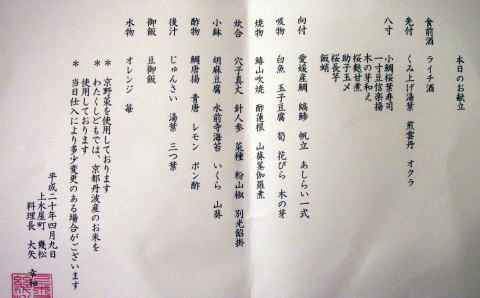 本日のお献立
食前酒 ライチ酒
先付 くみ上げ湯葉 煎雲丹 オクラ
八寸 小鯛桜葉寿司
一寸豆信楽揚
木の芽和え
桜麩甘煮
助子玉〆
桜長芋
飯蛸
向付 愛媛産鯛 縞鯵 帆立 あしらい一式
吸物 白魚 玉子豆腐 筍 花びら 木の芽
焼物 鰆山吹焼 酢蓮根 山葵茎伽羅煮
炊合 穴子真丈 針人参 菜種 粉山椒 別光餡掛
小鉢 胡麻豆腐 水前寺海苔 いくら 山葵
酢物 鯛唐揚 青唐 レモン ポン酢
後汁 じゅんさい 湯葉 三つ葉
御飯 豆御飯
水物 オレンジ 苺
* 京野菜を使用しております
* わたくしどもでは、京都丹波産のお米を
使用しております
* 当日仕入により多少変更のある場合がございます
平成二十年四月九日
上木屋町 幾松
料理長 大矢 幸和